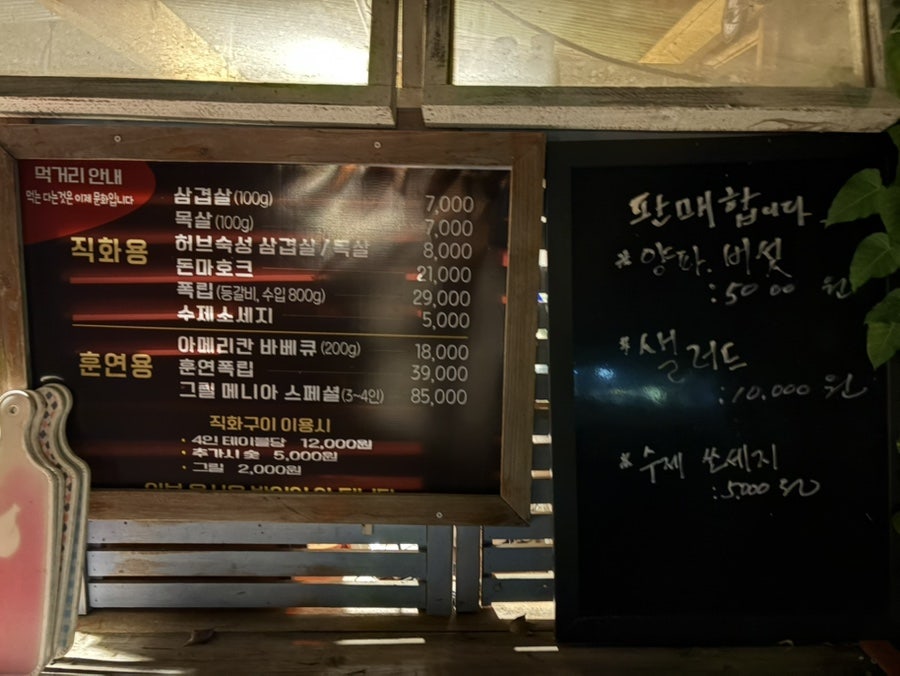 먹거리 안내
먹는 다는것은 이제 문화입니다
직화용
삼겹살 (100g) 7,000
목살 (100g) 7,000
허브숙성 삼겹살 / 목살 8,000
돈마호크 21,000
폭립 (등갈비, 수입 800g) 29,000
수제소세지 5,000
훈연용
아메리칸 바베큐 (200g) 18,000
훈연폭립 39,000
그릴 메니아 스페셜 (3~4인) 85,000
직화구이 이용시
· 4인 테이블당 12,000원
· 추가시 숯 5,000원
· 그릴 2,000원
판매합니다.
* 양파. 버섯
: 5000 원
* 샐러드
: 10.000 원
* 수제 쏘세지
: 5.000 원